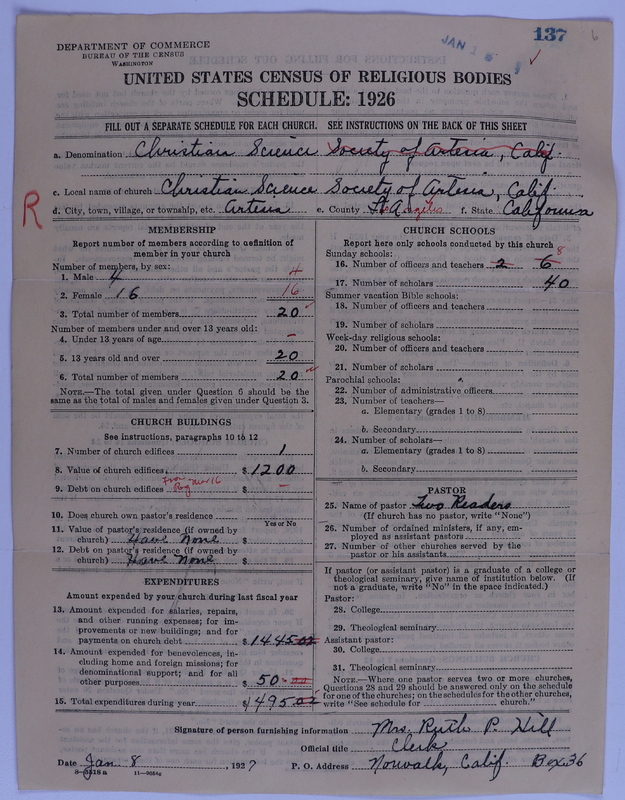 137
JAN 1
DEPARTMENT OF COMMERCE
BUREAU OF THE CENSUS
WASHINGTON
UNITED STATES CENSUS OF RELIGIOUS BODIES
SCHEDULE: 1926
FILL OUT A SEPARATE SCHEDULE FOR EACH CHURCH. SEE INSTRUCTIONS ON THE BACK OF THIS SHEET
a. Denomination Christian Science Society of Artesia, Calif.
c. Local name of church Christian Science Society of Artesia, Calif.
d. City, town, village, or township, etc. Artesia e. County Los Angeles f. State California
R
MEMBERSHIP
Report number of members according to definition of
member in your church
Number of members, by sex:
1. Male 4 4
2. Female 16 16
3. Total number of members 20
Number of members under and over 13 years old:
4. Under 13 years of age –
5. 13 years old and over 20
6. Total number of members 20
NOTE.—The total given under Question 6 should be
same as the total of males and females given under Question 3.
CHURCH BUILDINGS
See instructions, paragraphs 10 to 12
7. Number of church edifices 1
8. Value of church edifices $ 1200
9. Debt on church edifices $ –
10. Does church own pastor's residence
Yes or No
11. Value of pastor's residence (if owned by
church) Have None $
12. Debt on pastor's residence (if owned by
church) Have None $
EXPENDITURES
Amount expended by your church during last fiscal year
13. Amount expended for salaries, repairs,
and other running expenses; for im-
provements or new buildings; and for
payments on church debt $ 1445 02
14. Amount expended for benevolences, in-
cluding home and foreign missions; for
denominational support; and for all
other purposes $ 50
15. Total expenditures during year $ 1495 02
CHURCH SCHOOLS
Report here only schools conducted by this church
Sunday schools:
16. Number of officers and teachers 2 6 8
17. Number of scholars 40
Summer vacation Bible schools:
18. Number of officers and teachers
19. Number of scholars
Week-day religious schools:
20. Number of officers and teachers
21. Number of scholars
Parochial schools:
22. Number of administrative officers
23. Number of teachers—
a. Elementary (grades 1 to 8)
b. Secondary
24. Number of scholars—
a. Elementary (grades 1 to 8)
b. Secondary
PASTOR
25. Name of pastor Two Readers
(If church has no pastor, write "None")
26. Number of ordained ministers, if any, em-
ployed as assistant pastors
27. Number of other churches served by the
pastor or his assistants
If pastor (or assistant pastor) is a graduate of a college or
theological seminary, give name of institution below. (If
not a graduate, write "No" in the space indicated.)
Pastor:
28. College
29. Theological seminary
Assistant pastor:
30. College
31. Theological seminary
NOTE.—Where one pastor serves two or more churches,
Questions 28 and 29 should be answered only on the schedule
for one of the churches; on the schedules for the other churches,
write "See schedule for church.
Signature of person furnishing information Mrs. Ruth P. Hill
Official title Clerk
Date Jan 8, 1927 P. O. Address Norwalk, Calif. Box 36
8—3418 a 11—9664g